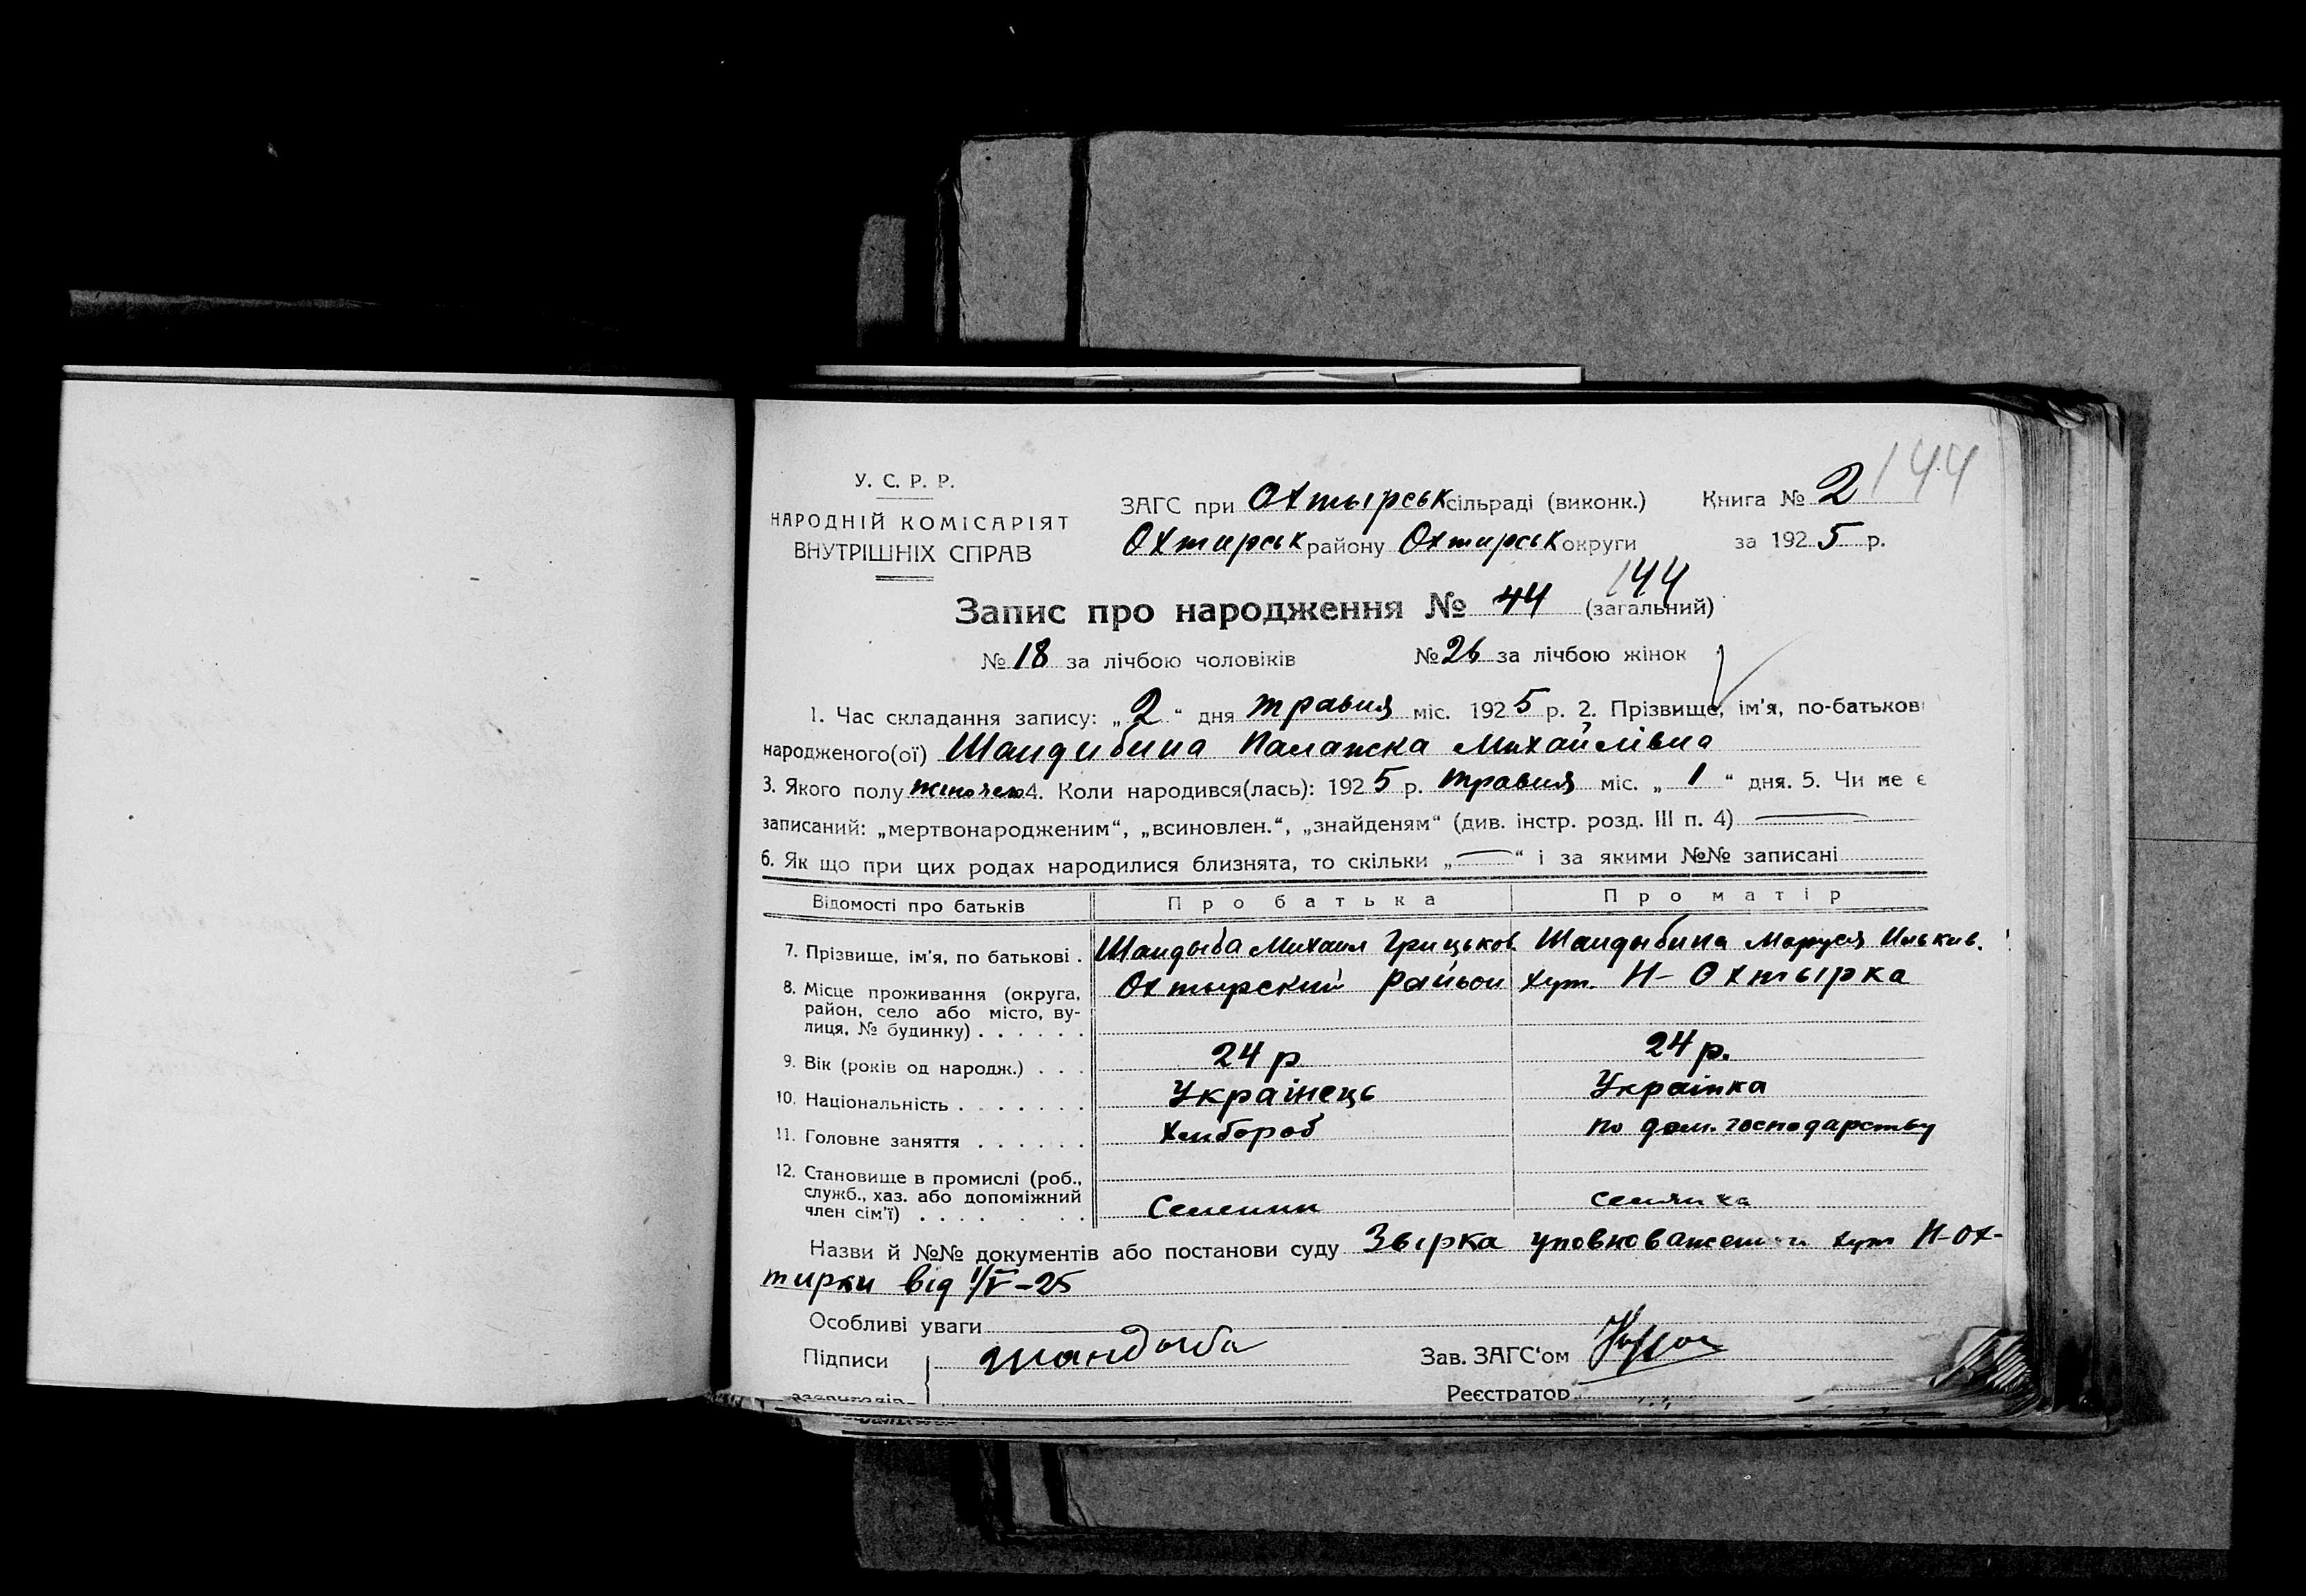 144
У. С. Р. Р.
НАРОДНІЙ КОМІСАРІЯТ
ВНУТРІШНІХ СПРАВ
ЗАГС при Охтырськ сільраді (виконк.) Книга № 2
Охтирськ району Охтирськ округи за 1925 р.
144
Запис про народження № 44 (загальний)
№ 18 за лічбою чоловіків № 26 за лічбою жінок
1. Час складання запису: „2“ дня травня міс. 1925 р. 2. Прізвище, ім'я, по-батькові
народженого(ої) Шандибина Палажка Михайлівна
3. Якого полу 4. Коли народився(лась): 1925 р. травня міс. „1“ дня. 5. Чи не є
записаний: „мертвонародженим“, „всиновлен.“, „знайденям“ (див. інстр. розд. III п. 4)
6. Як що при цих родах народилися близнята, то скільки „—“ і за якими №№ записані
Відомості про батьків Про батька Про матір
7. Прізвище, ім'я, по батькові . Шандыба Михаил Грицьков. Шандыбина Маруся Илькив.
8. Місце проживання (округа, Охтырский Район хут. Н-Охтырка
район, село або місто, ву-
лиця, № будинку) . . . . . .
9. Вік (років од народж.) . . . 24 р 24 р.
10. Національність . . . . . . . Українець Українка
11. Головне заняття . . . . . . Хлібороб по дом. господарству
12. Становище в промислі (роб.,
служб., хаз. або допоміжний
член сім'ї) . . . . . . . Селянин селянка
Назви й №№ документів або постанови суду Звірка уповноваженого хут Н-Ох-
тирки від 1/V-25
Особливі уваги
Підписи Шандыба Зав. ЗАГС'ом
Реєстратор